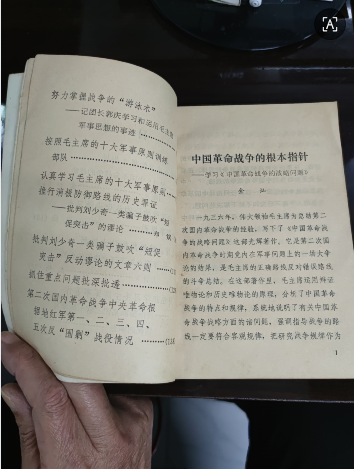 努力掌握战争的“游泳术”
——记团长郭庆学习和运用毛主席
军事思想的事迹
按照毛主席的十大军事原则训练
部队
认真学习毛主席的十大军事原则
推行消极防御路线的历史罪证
——批判刘少奇一类骗子鼓吹“短
促突击”的谬论
批判刘少奇一类骗子鼓吹“短促
突击”反动谬论的文章六则
抓住重点问题批深批透
第二次国内革命战争中央革命根
据地红军第一、二、三、四、
五次反“围剿”战役情况
中国革命战争的根本指针
——学习《中国革命战争的战略问题》
一九三六年,伟大领袖毛主席为总结第二
次国内革命战争的经验,写下了《中国革命战
争的战略问题》这部光辉著作。它是第二次国
内革命战争时期党内在军事问题上的一场大争
论的结果,是毛主席的正确路线反对错误路线
的斗争总结。在这部著作里,毛主席运用辩证
唯物论和历史唯物论的原理,分析了中国革命
战争的特点和规律,系统地说明了有关中国革
命战争战略方面的诸问题,强调指导战争的路
线一定要符合客观规律,把研究战争规律作为
1